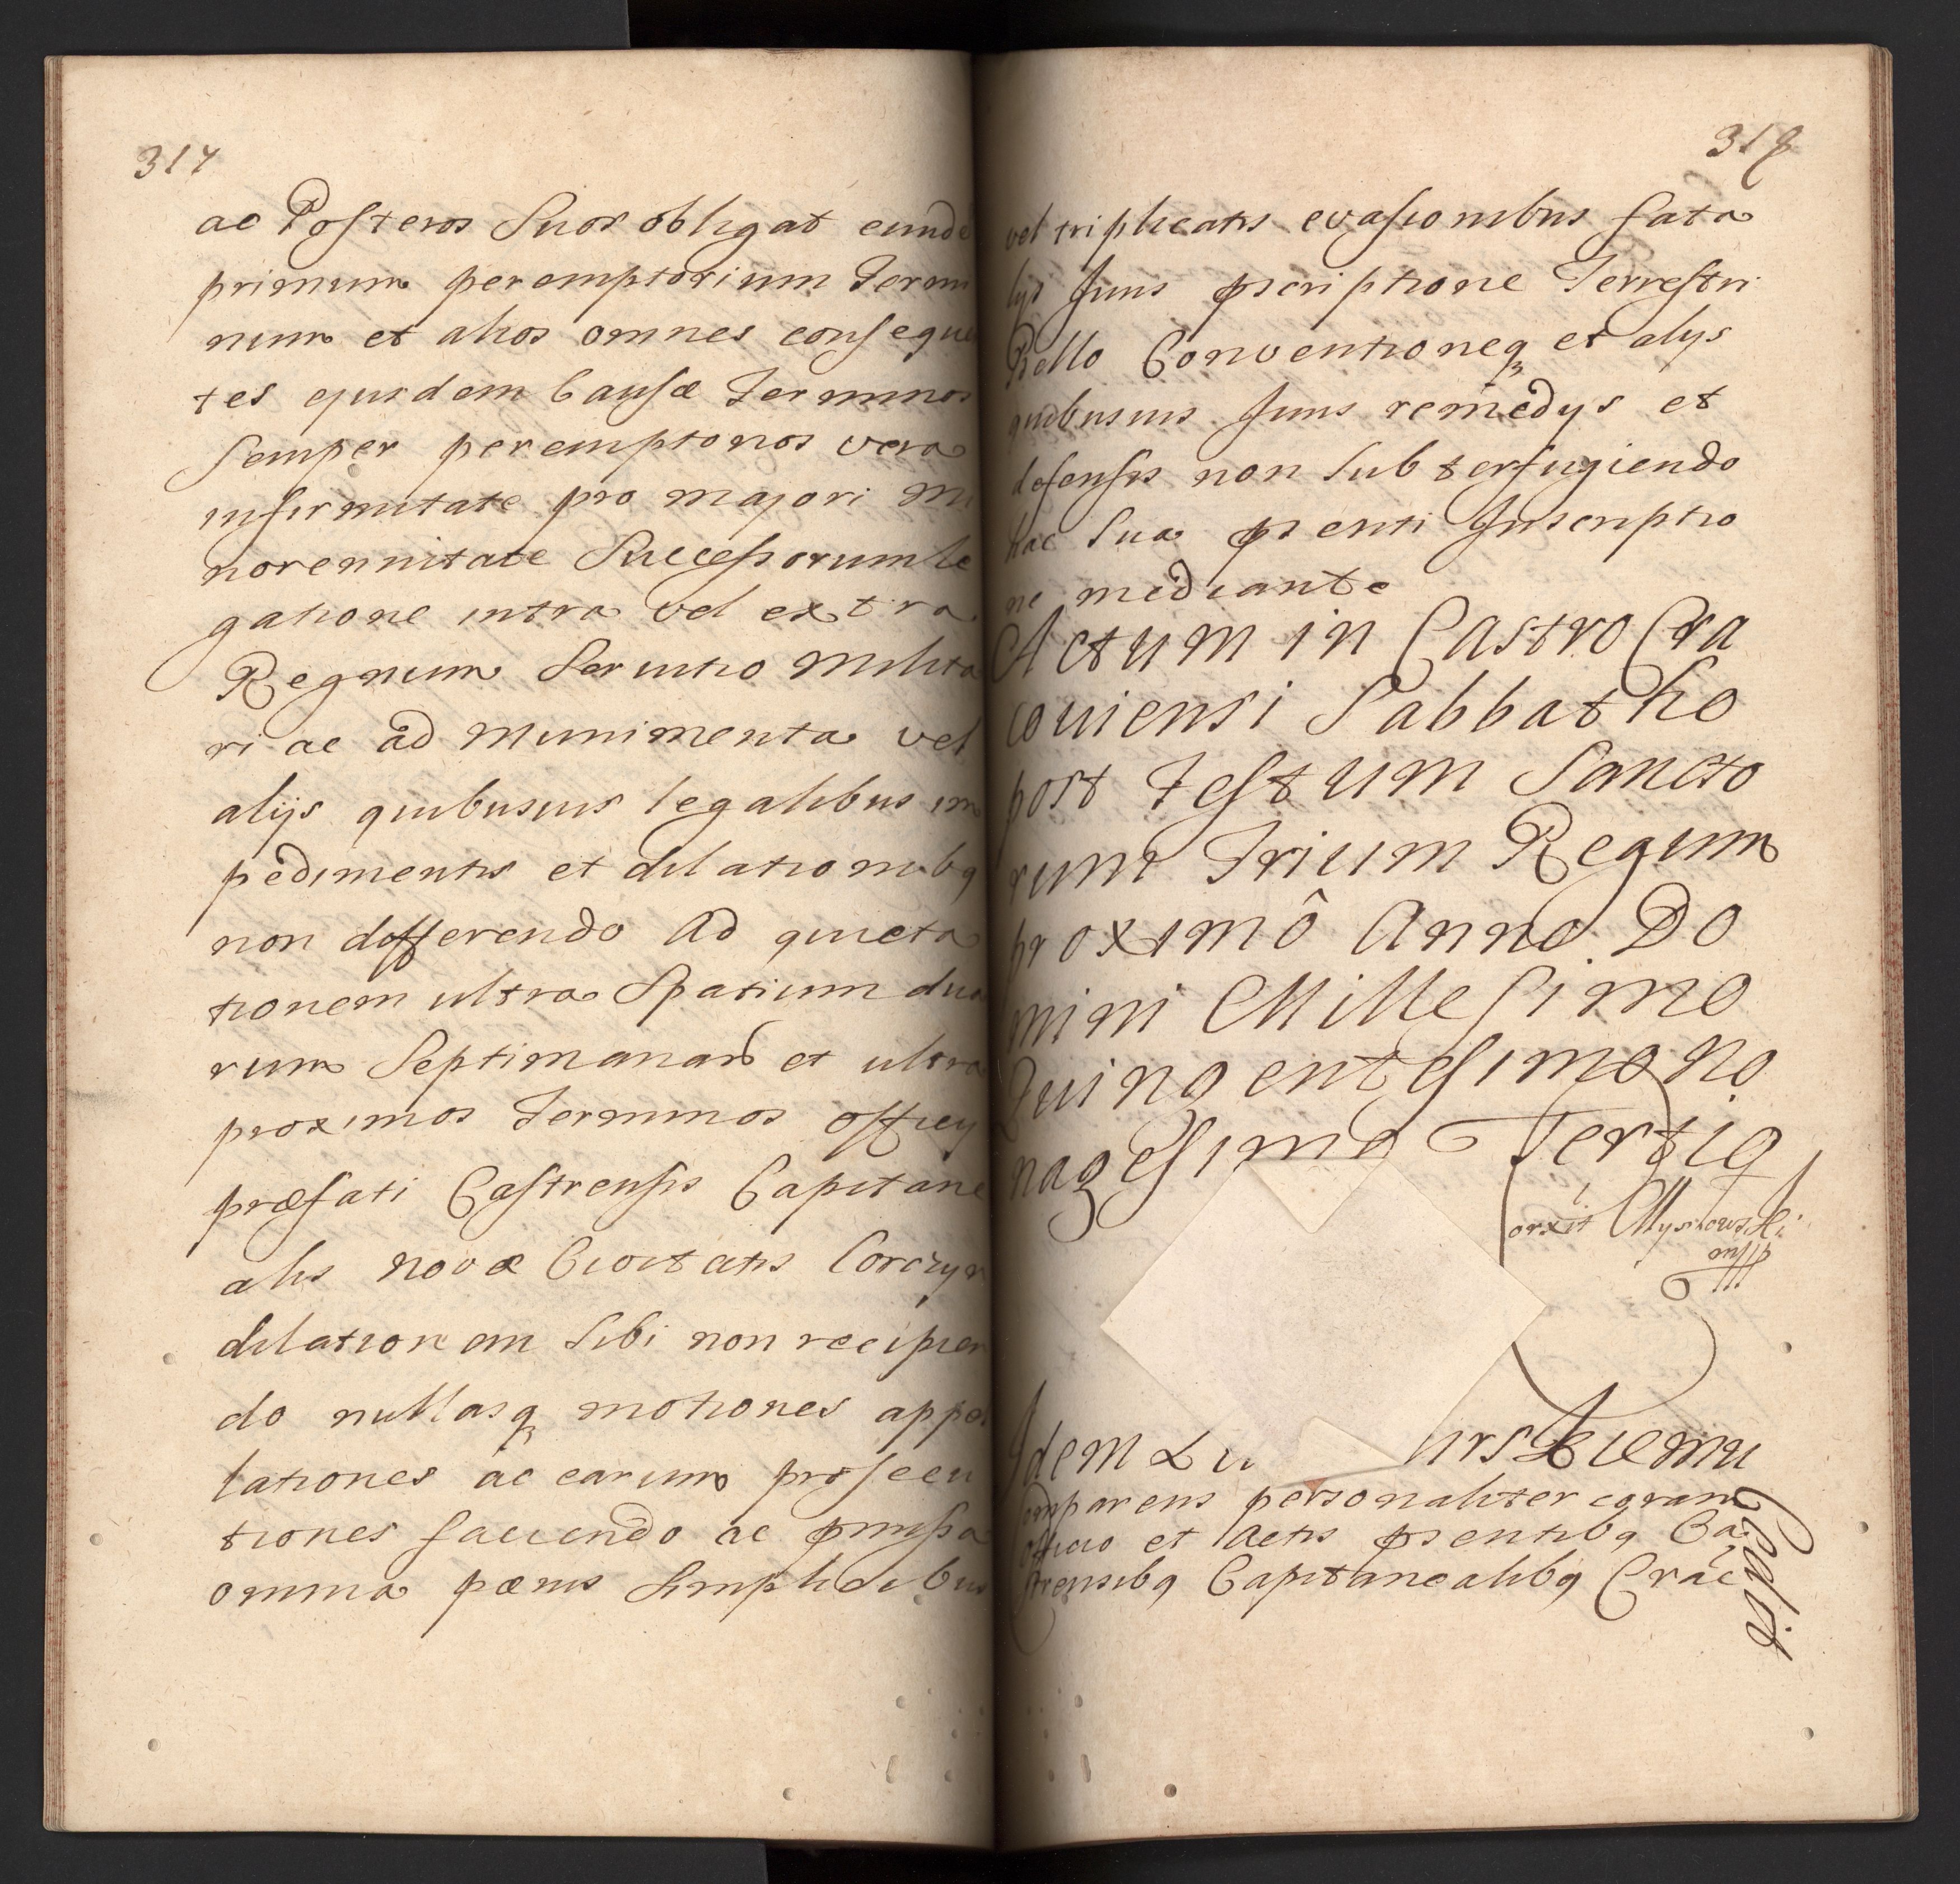 317
ac Posteros Suos obligat eunde
primum peremptorium Termi
num et alios omnes conseque
tes ejusdem Causæ Terminos
Semper peremptorios vera
infirmitate pro majori Mi
norennitate Successorum le
gatione intra vel extra
Regnum Servitio Milita
ri ac ad Munimenta vel
alijs quibusuis legalibus im
pedimentis et dilationibq
non differendo Ad quieta
tionem ultra Spatium dua
rum Septimanarũ et ultra
proximos Terminos Officy
præfati Castrensis Capitane
alis novæ Civitatis Corczyn
dilationem Sibi non recipien
do nullasq motiones appel
lationes ac earum prosecu
tiones faciendo ac pmissa
omnia pænis Simplicibus
318
vel triplicatis evasionibus fata
lys Juris pscriptione Terrestri
Bello Conventioneq et alys
quibusuis Juris remedys et
defensis non Subterfugiendo
hac Sua psenti Inscriptio
ne mediante
Actum in Castro Cra
couiensi Sabbatho
post Festum Sancto
rum Trium Regum
proximô Anno Do
mini Millesimo
Quingentesimo No
nagesimo Tertio
orxit Myszkowski
mpp
Idem Lu urskiemu
comparens personaliter coram
Officio et Actis psentibq Ca
strensibq Capitanealibq Crac
Cedit